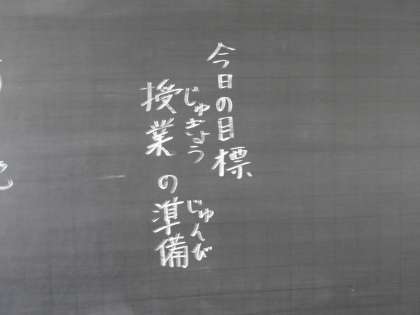 今日の目標
授業の準備
じゅぎょう
じゅんび